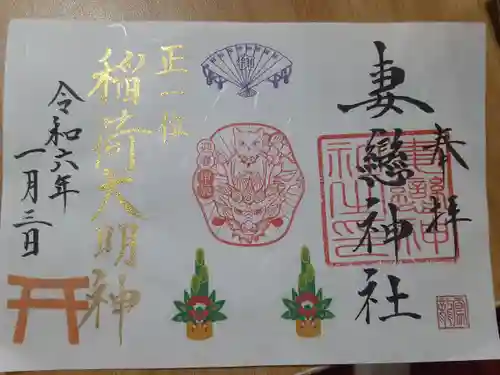 奉拝
妻戀神社
正一位
稲荷大明神
令和六年
一月三日